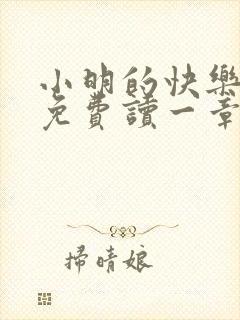 小明的快樂
免費讀一章
掃晴娘